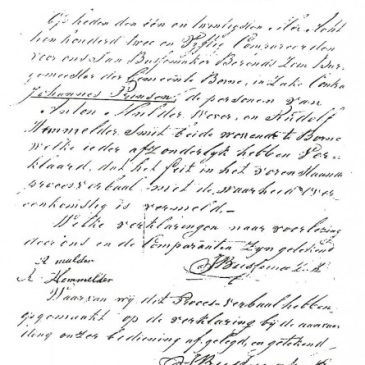 Op heden den één en twintigsten Mei Acht
tien honderd twee en Vyftig Compareerden
voor ons Jan Bussemaker Berends Zoon Bur,
gemeester der Gemeente Borne, in zake Contra
Johannes de personen van
Anton Mulder Wever, en Rudolf
Hemmelder, Smit beide wonende te Borne
welke ieder afzonderlyk hebben Ver-
klaard, dat het feit in het voren staande
procesverbaal met de waarheid over
eenkomstig is vermeld.-
Welke verklaringen naar voorlezing
door ons en de Comparanten zyn getekend
A mulder
R Hemmelder
Waarvan wij dit Proces-verbaal hebben
opgemaakt op de verklaring bij de aanvaar
ding onzer bediening afgelegd, en getekend-